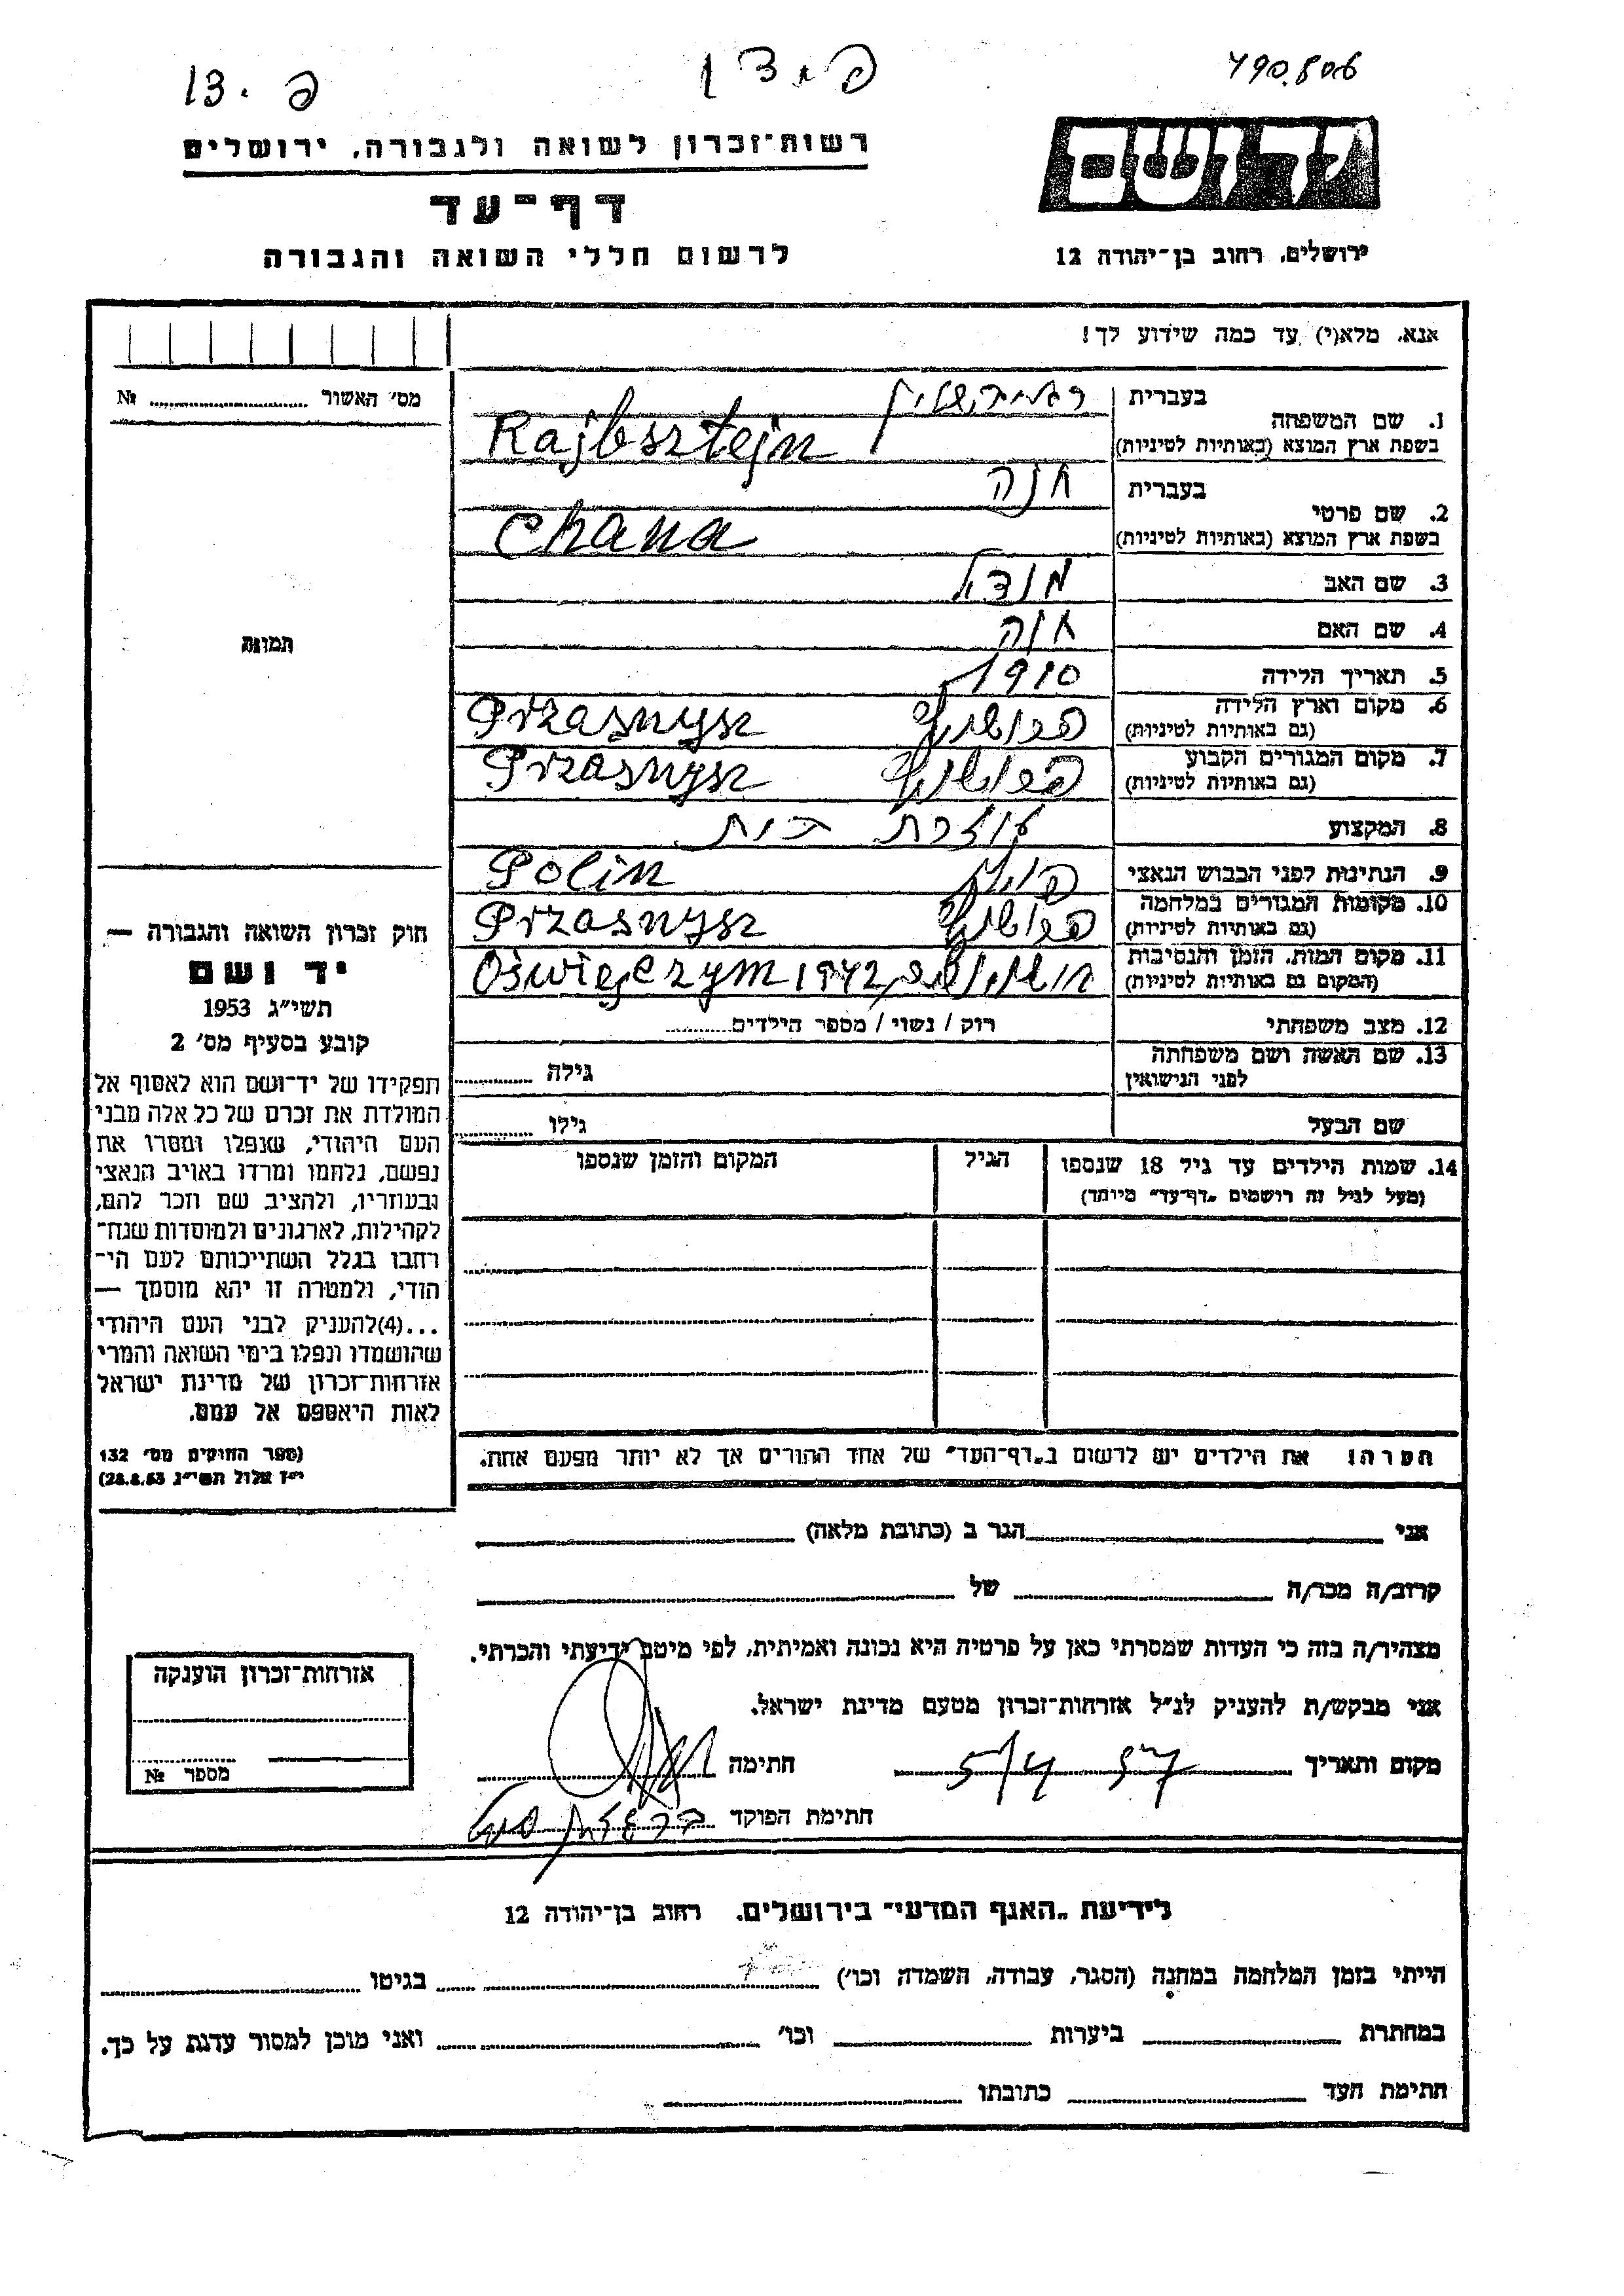 490.806
פ. צדן
פ. 13
יד ושם
רשות־זכרון לשואה ולגבורה, ירושלים
דף־עד
ירושלים, רחוב בן־יהודה 12
לרשום חללי השואה והגבורה
אנא, מלא(י) עד כמה שידוע לך!
מס׳ האשור № 
1. שם המשפחה
בעברית
בשפת ארץ המוצא (באותיות לטיניות)
Rajbsztejn
2. שם פרטי
בעברית חנה
בשפת ארץ המוצא (באותיות לטיניות)
Chana
3. שם האב מנדל
4. שם האם חוה
5. תאריך הלידה 1910
6. מקום וארץ הלידה
(גם באותיות לטיניות)
Przasnysz
7. מקום המגורים הקבוע
(גם באותיות לטיניות)
Przasnysz
8. המקצוע עוזרת בית
9. הנתינות לפני הכבוש הנאצי פולין Polin
10. מקומות המגורים במלחמה
(גם באותיות לטיניות)
Przasnysz
11. מקום המות, הזמן והנסיבות
(המקום גם באותיות לטיניות)
Oświęczym 1942
12. מצב משפחתי רוק / נשוי / מספר הילדים
13. שם האשה ושם משפחתה
לפני הנישואין
גילה
שם הבעל גילו
14. שמות הילדים עד גיל 18 שנספו
(מעל לגיל זה רושמים „דף־עד״ מיוחד)
הגיל
המקום והזמן שנספו
הערה! את הילדים יש לרשום ב„דף־העד״ של אחד ההורים אך לא יותר מפעם אחת.
תמונה
חוק זכרון השואה והגבורה —
יד ושם
תשי״ג 1953
קובע בסעיף מס׳ 2
תפקידו של יד־ושם הוא לאסוף אל
המולדת את זכרם של כל אלה מבני
העם היהודי, שנפלו ומסרו את
נפשם, נלחמו ומרדו באויב הנאצי
ובעוזריו, ולהציב שם וזכר להם,
לקהילות, לארגונים ולמוסדות שנח־
רבו בגלל השתייכותם לעם הי־
הודי, ולמטרה זו יהא מוסמך —
...(4)להעניק לבני העם היהודי
שהושמדו ונפלו בימי השואה והמרי
אזרחות־זכרון של מדינת ישראל
לאות היאספם אל עמם.
(ספר החוקים מס׳ 132
י״ז אלול תשי״ג 28.8.53)
אני הגר ב (כתובת מלאה)
קרוב/ה מכר/ה של
מצהיר/ה בזה כי העדות שמסרתי כאן על פרטיה היא נכונה ואמיתית, לפי מיטב ידיעתי והכרתי.
אני מבקש/ת להעניק לנ״ל אזרחות־זכרון מטעם מדינת ישראל.
מקום ותאריך 5/4 57 חתימה
חתימת הפוקד
אזרחות־זכרון הוענקה
מספר №
לידיעת „האגף המדעי״ בירושלים, רחוב בן־יהודה 12
הייתי בזמן המלחמה במחנה (הסגר, עבודה, השמדה וכו׳) בגיטו
במחתרת ביערות וכו׳ ואני מוכן למסור עדות על כך.
חתימת העד כתובתו